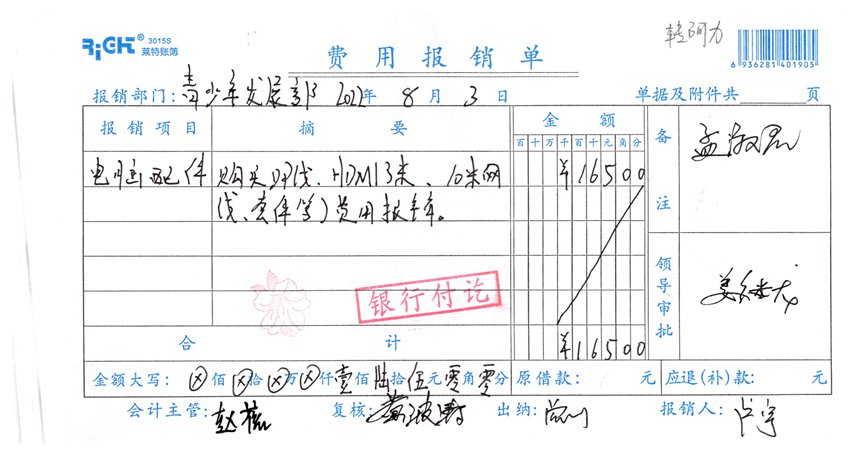 RIGHT® 3015S 莱特账簿
费用报销单
6 936281 401905
报销部门：青少年发展部 2022年 8月 3日 单据及附件共 页
报销项目 摘要 金额 备注
百十万千百十元角分
百十万千百十元角分
电脑配件 购买DP线、HDMI 3米、10米网 ¥16500
线、套件等）费用报销。
银行付讫
领导审批
合计 ¥16500
金额大写：ⓧ佰ⓧ拾ⓧ万ⓧ仟壹佰陆拾伍元零角零分 原借款： 元 应退（补）款： 元
会计主管： 复核： 出纳： 报销人：